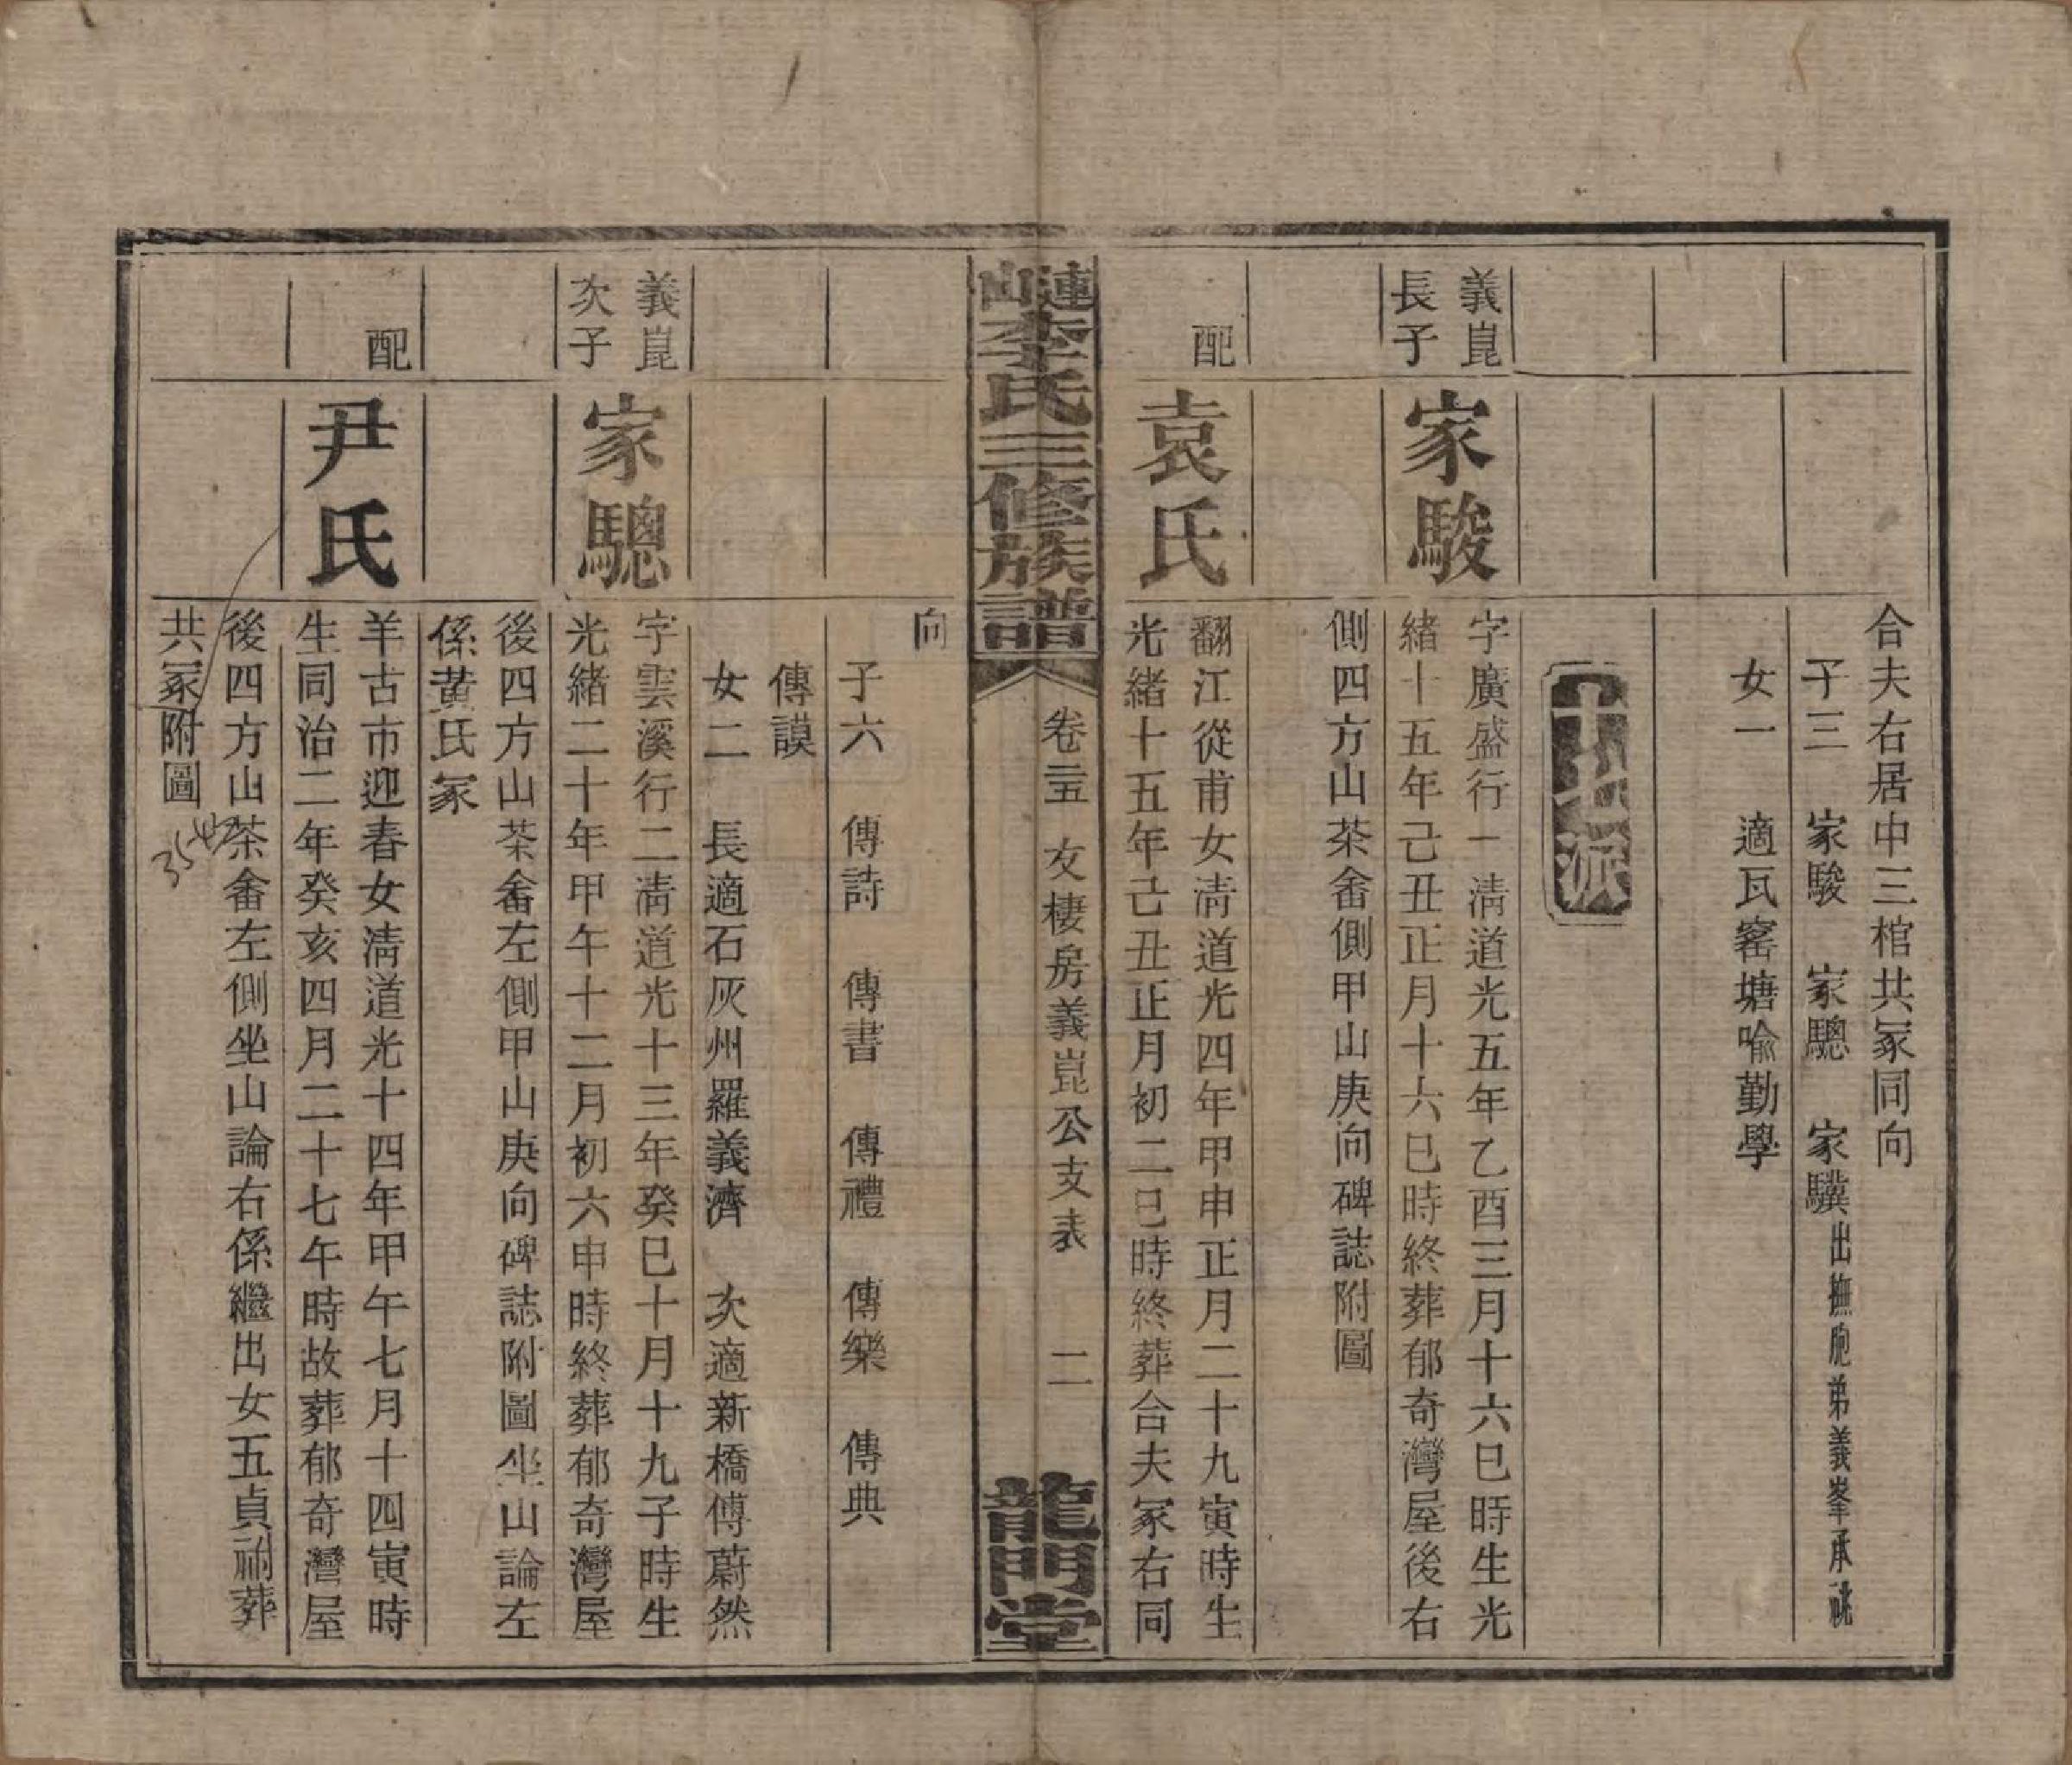 合夫右居中三棺共冢同向
子三 家駿 家驄 家驥出撫胞弟義峯承祧
女一 適瓦窰塘喻勤學
十七派
義崑
長子
家駿
字廣盛行一清道光五年乙酉三月十六巳時生光
緒十五年己丑正月十六巳時終葬郁奇灣屋後右
側四方山茶畬側甲山庚向碑誌附圖
配
袁氏
翻江從甫女清道光四年甲申正月二十九寅時生
光緒十五年己丑正月初二巳時終葬合夫冢右同
漣山李氏三修族譜
卷二五 友棲房義崑公支表 二
龍門堂
向
子六 傳詩 傳書 傳禮 傳樂 傳典
傳謨
女二 長適石灰州羅義濟 次適新橋傅蔚然
義崑
次子
家驄
字雲溪行二清道光十三年癸巳十月十九子時生
光緒二十年甲午十二月初六申時終葬郁奇灣屋
後四方山茶畬左側甲山庚向碑誌附圖坐山論左
係黃氏冢
配
尹氏
羊古市迎春女清道光十四年甲午七月十四寅時
生同治二年癸亥四月二十七午時故葬郁奇灣屋
後四方山茶畬左側坐山論右係繼出女五貞祔葬
共冢附圖